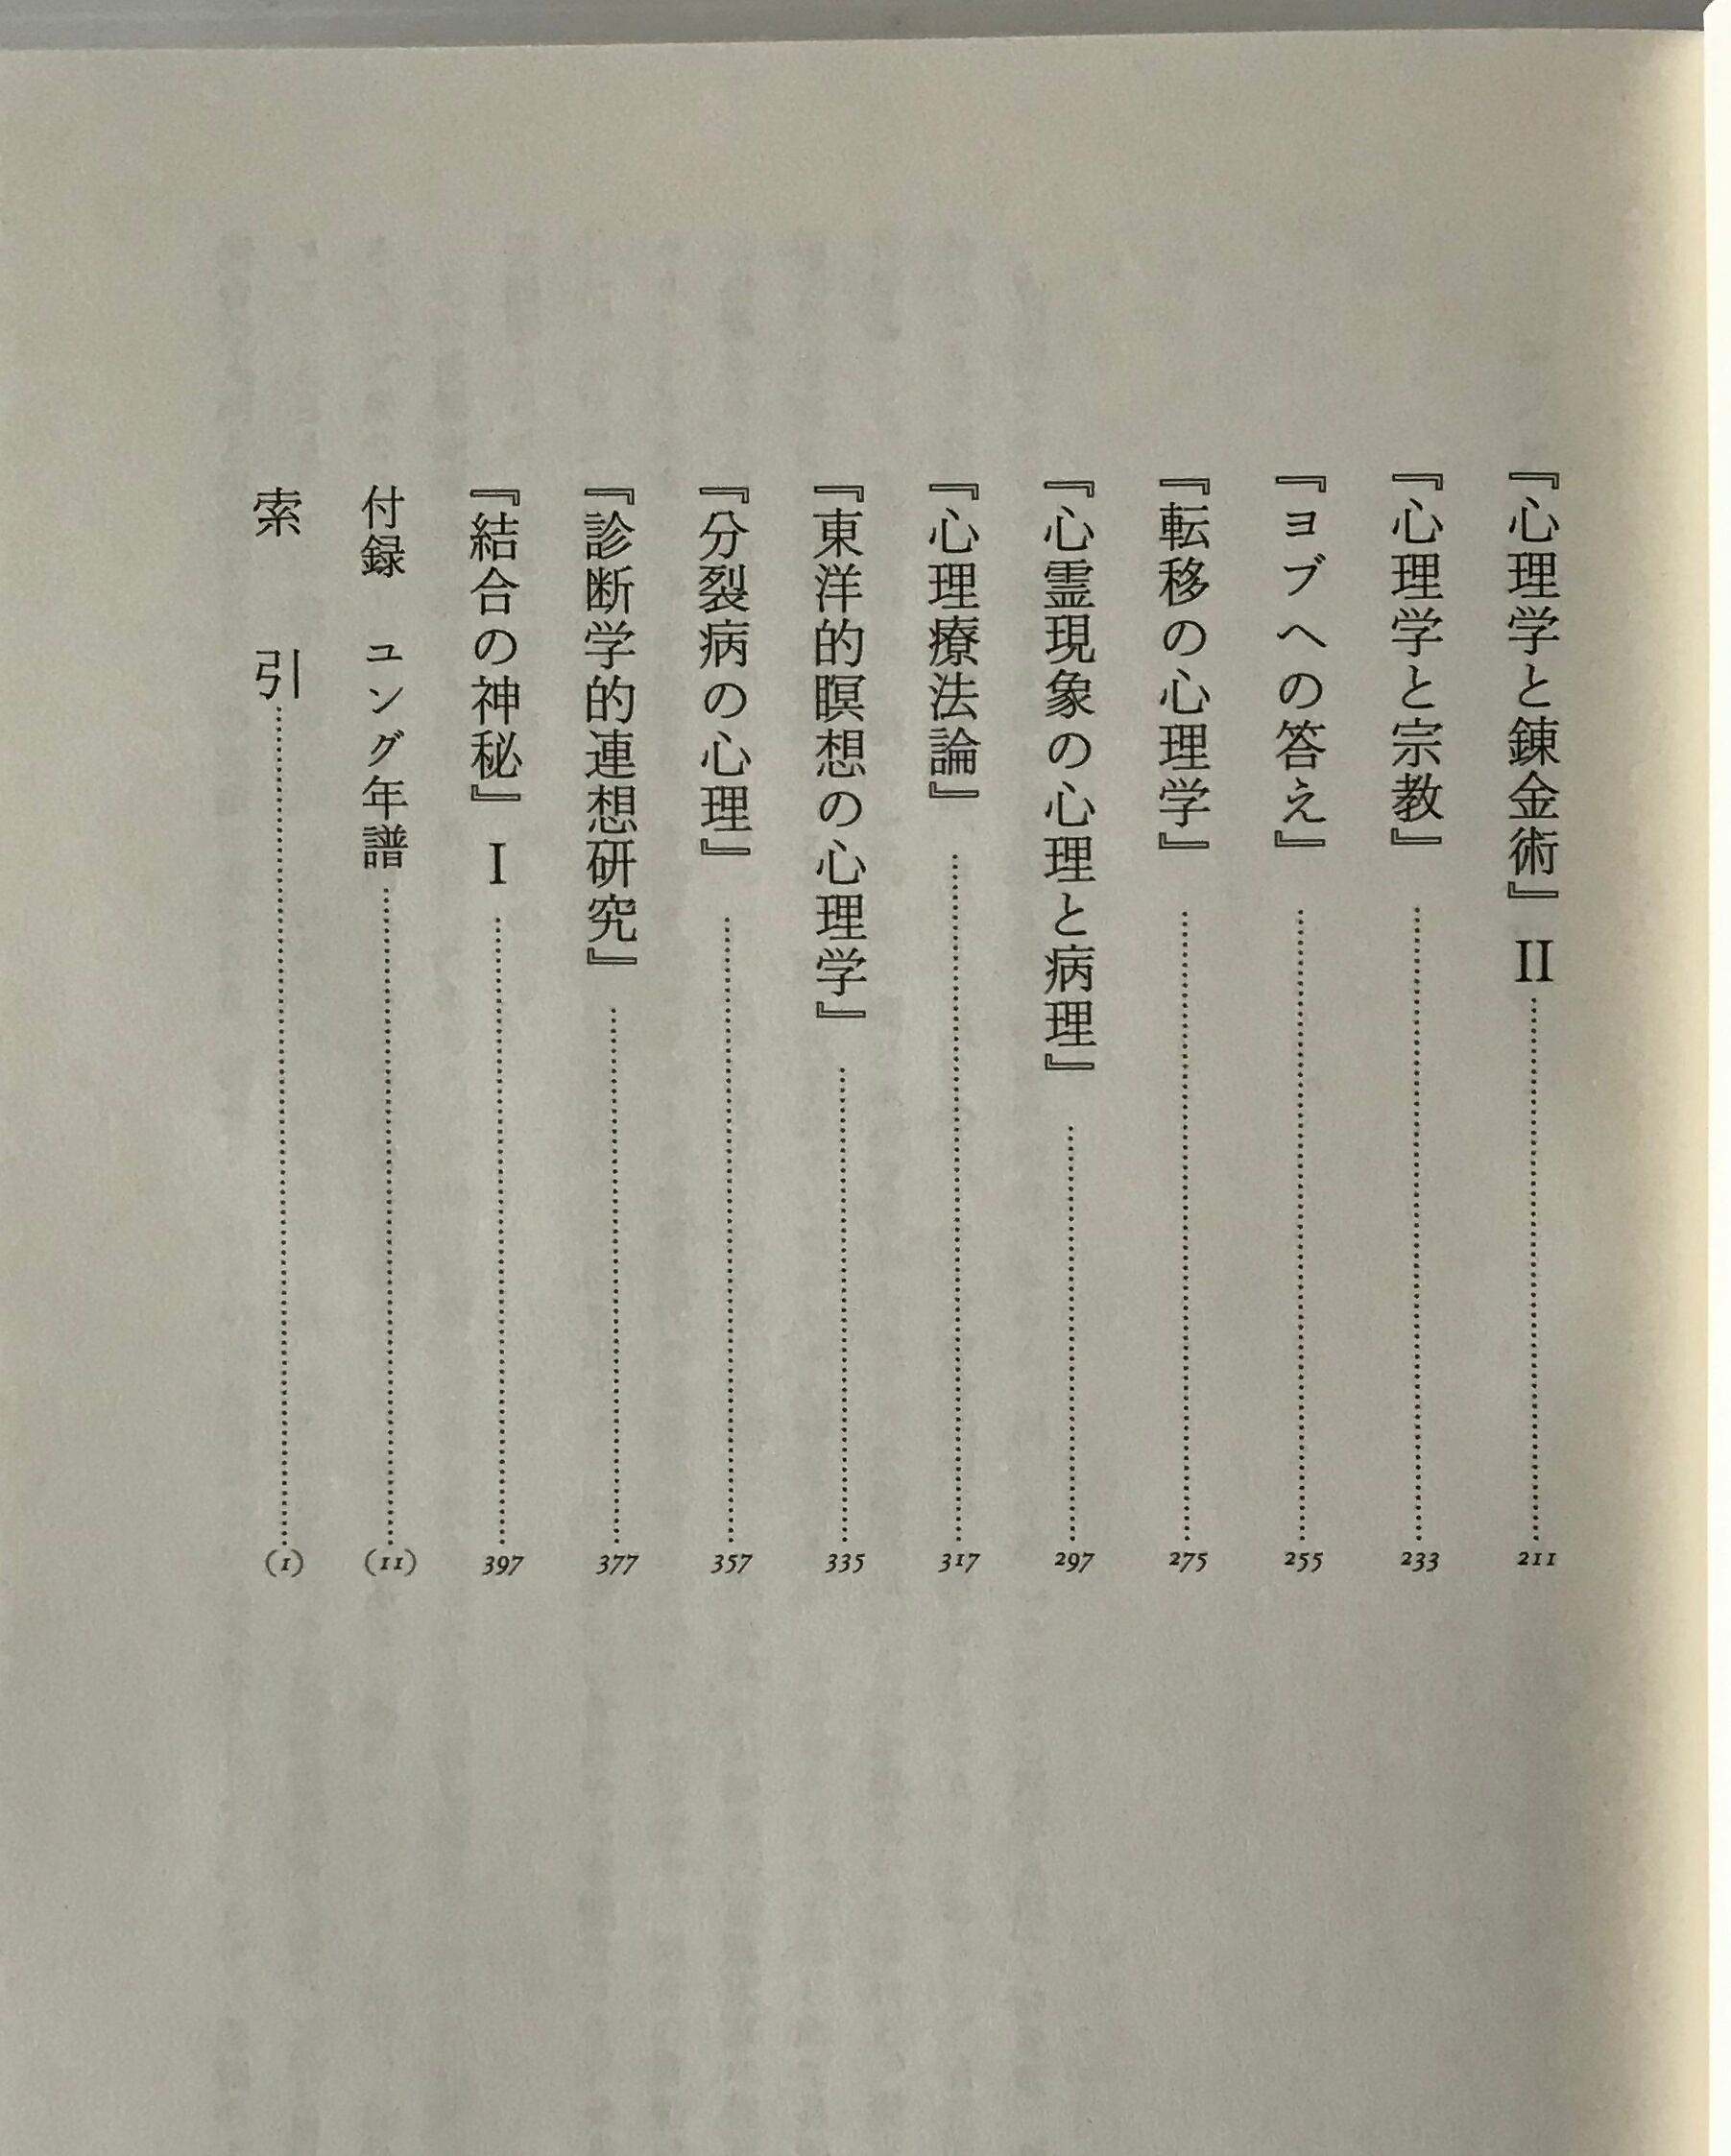 『心理学と錬金術』 II ……… 211
『心理学と宗教』 ……… 233
『ヨブへの答え』 ……… 255
『転移の心理学』 ……… 275
『心霊現象の心理と病理』 ……… 297
『心理療法論』 ……… 317
『東洋的瞑想の心理学』 ……… 335
『分裂病の心理』 ……… 357
『診断学的連想研究』 ……… 377
『結合の神秘』 I ……… 397
付録 ユング年譜 ……… (11)
索 引 ……… (1)